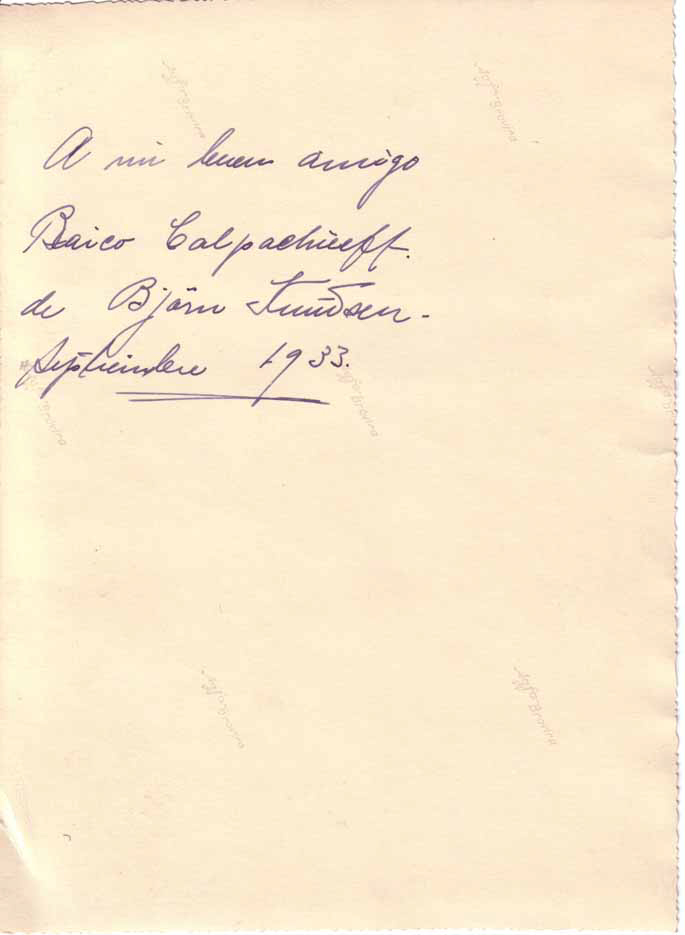 Agfa-Brovira
Agfa-Brovira
A mi buen amigo
Baico Calpachieff.
de Björn Knudsen.
Septiembre 1933.
Agfa-Brovira
Agfa-Brovira
Agfa-Brovira
Agfa-Brovira